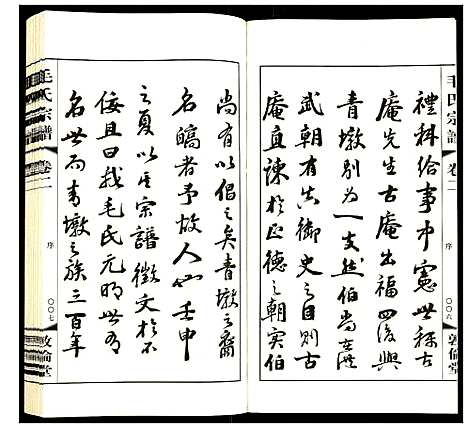 毛氏宗譜
卷二
序
〇〇六
敦倫堂
禮科給事中憲世稱古
庵先生古庵出福四後與
青墩別為一支然伯尚在洪
武朝有真御史之目則古
庵直諫於正德之朝實伯
尚有以倡之矣青墩之裔
名皜者予故人也壬申
之夏以其宗譜徵文於不
佞且曰我毛氏元明世有
名世而青墩之族三百年
毛氏宗譜
卷二
序
〇〇七
敦倫堂